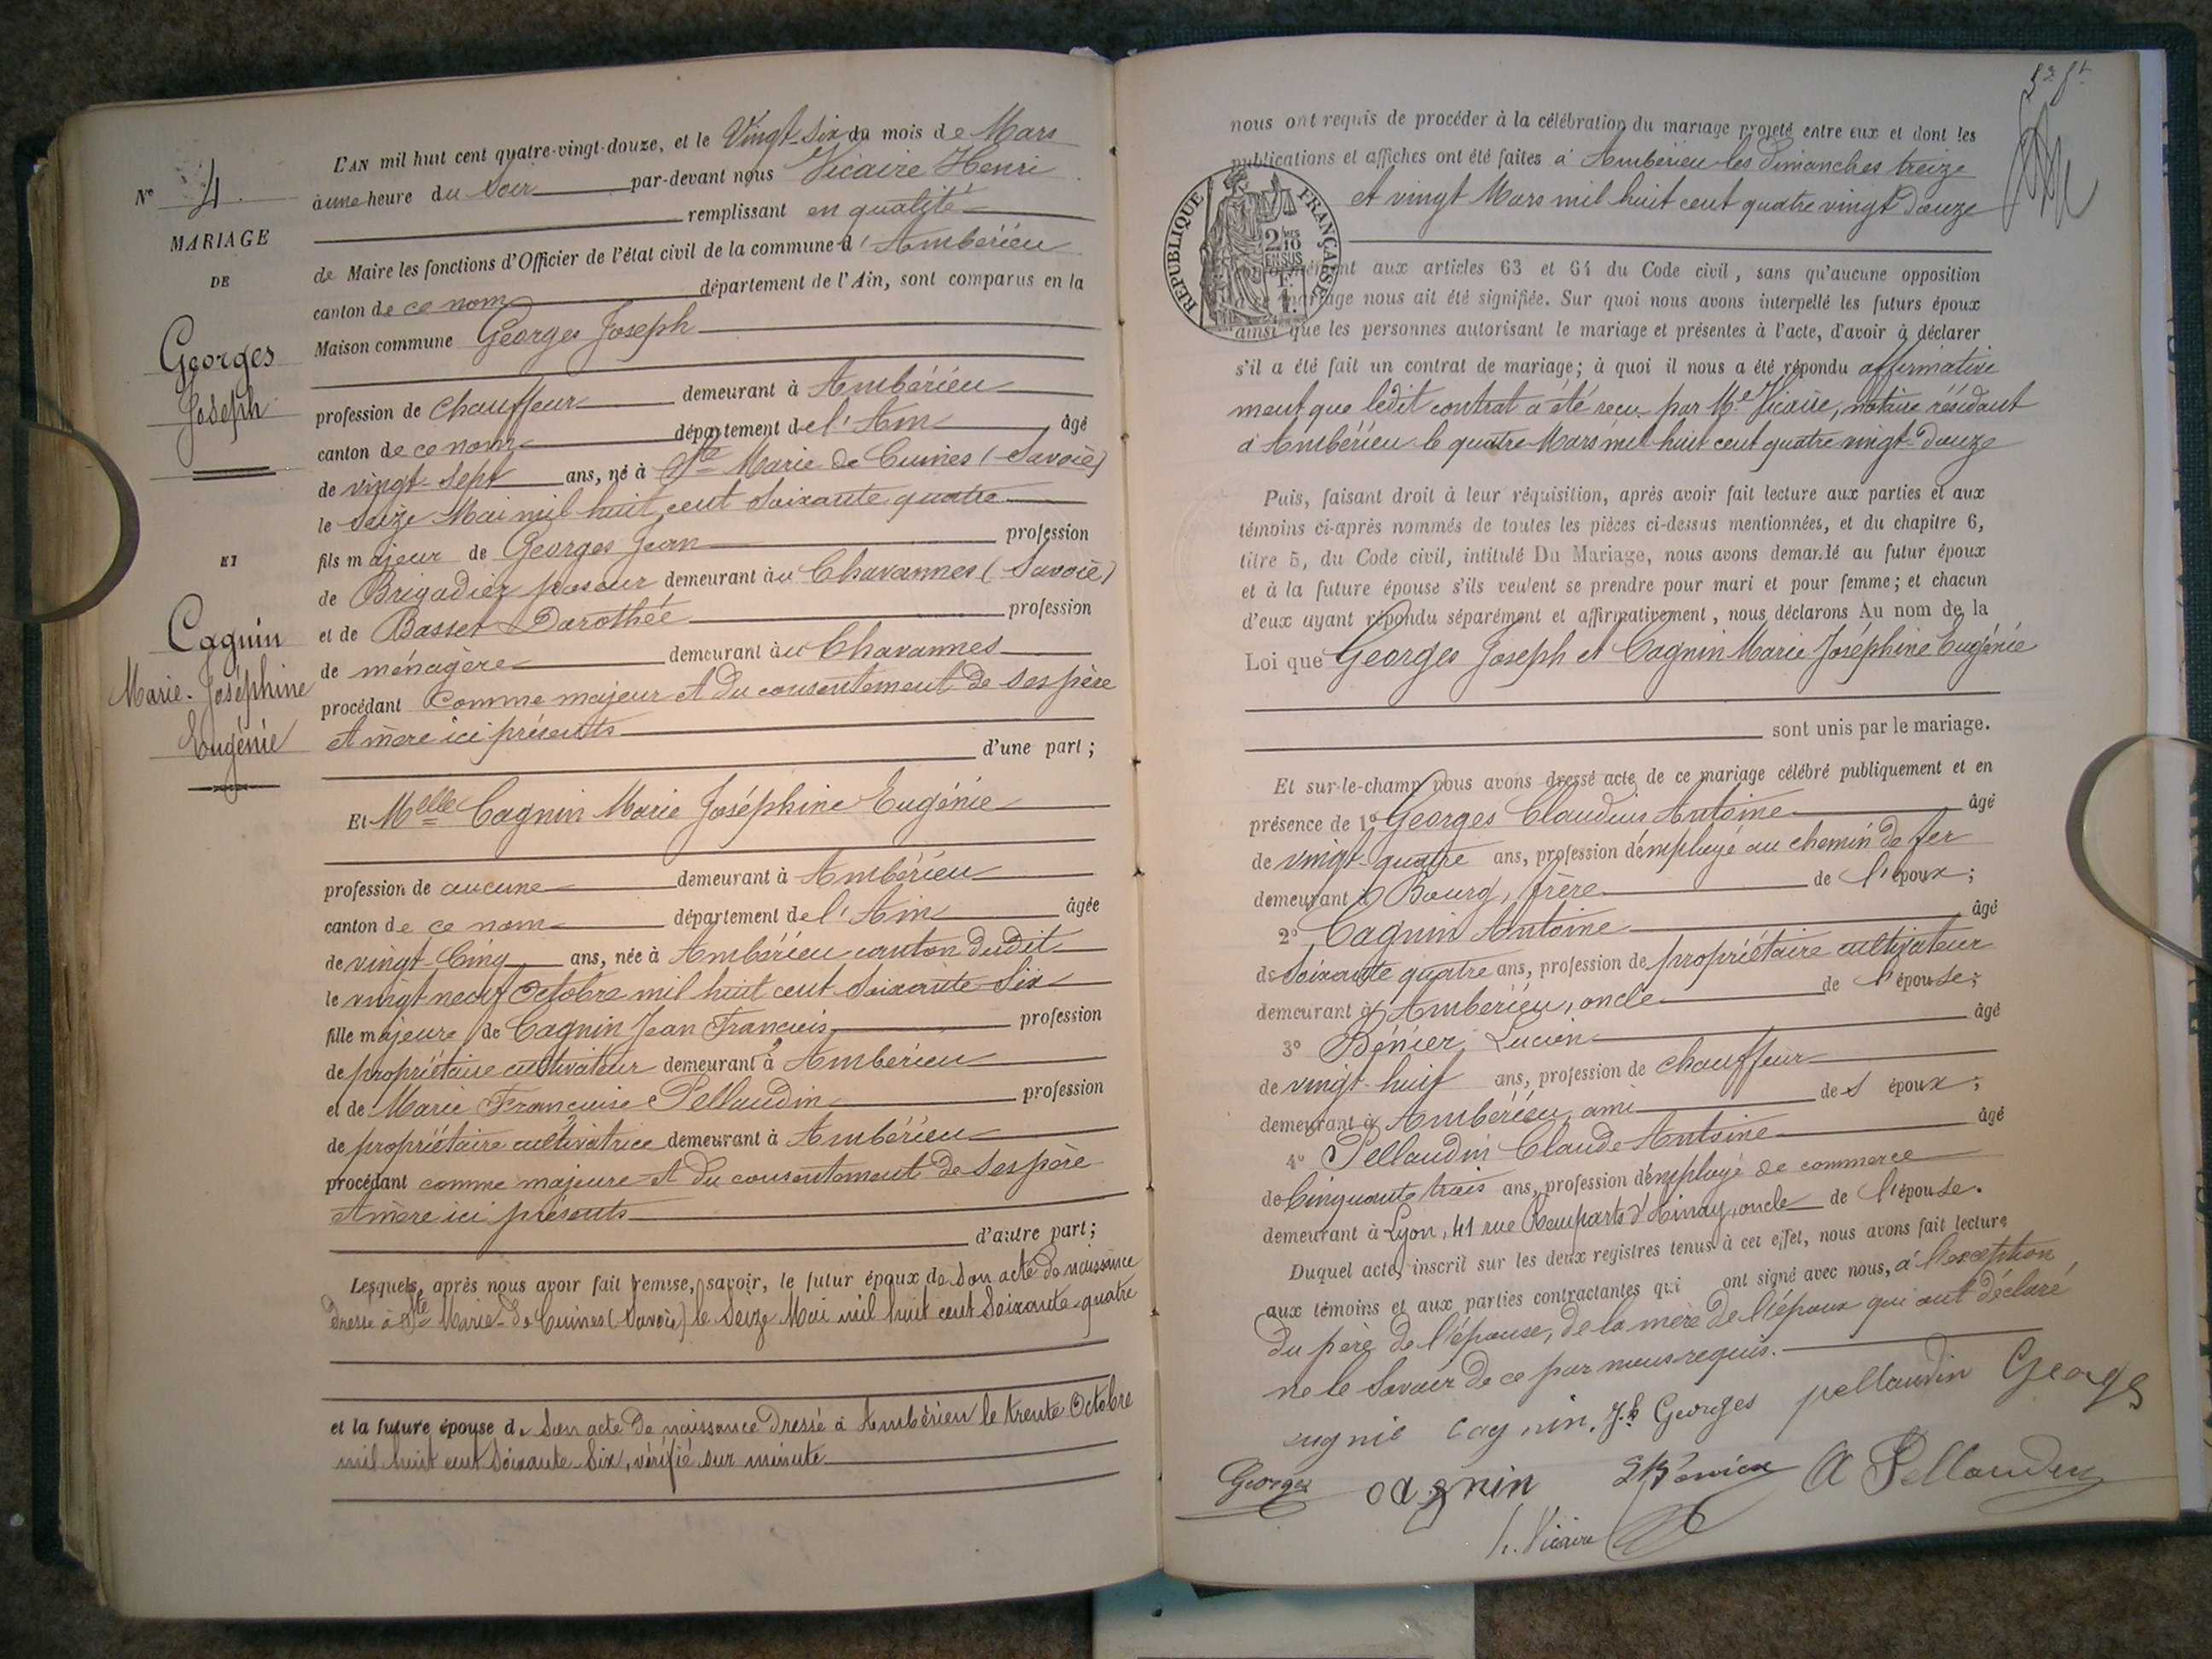 N° 4
MARIAGE
DE
Georges
Joseph
ET
Cagnin
Marie-Joséphine
Eugénie
L'AN mil huit cent quatre-vingt-douze, et le Vingt-six du mois de Mars
à une heure du Soir par-devant nous Vicaire Henri
remplissant en qualité
de Maire les fonctions d'Officier de l'état civil de la commune d'Ambérieu
canton de ce nom département de l'Ain, sont comparus en la
Maison commune Georges Joseph
profession de chauffeur demeurant à Ambérieu
canton de ce nom département de l'Ain âgé
de vingt-sept ans, né à Ste Marie de Cuines (Savoie)
le seize Mai mil huit cent soixante quatre
fils majeur de Georges Jean profession
de Brigadier poseur demeurant à u Chavannes (Savoie)
et de Basset Dorothée profession
de ménagère demeurant à u Chavannes
procédant comme majeur et du consentement de ses père
et mère ici présents
d'une part;
Et Melle Cagnin Marie Joséphine Eugénie
profession de aucune demeurant à Ambérieu
canton de ce nom département de l'Ain âgée
de vingt-cinq ans, née à Ambérieu canton dudit
le vingt neuf Octobre mil huit cent soixante-six
fille majeure de Cagnin Jean François profession
de propriétaire cultivateur demeurant à Ambérieu
et de Marie Françoise Pellaudin profession
de propriétaire cultivatrice demeurant à Ambérieu
procédant comme majeure et du consentement de ses père
et mère ici présents
d'autre part;
Lesquels, après nous avoir fait remise, savoir, le futur époux de son acte de naissance
dressé à Ste Marie-de Cuines (Savoie) le seize Mai mil huit cent soixante-quatre
et la future épouse de son acte de naissance dressé à Ambérieu le trente Octobre
mil huit cent soixante-six, vérifié sur minute
nous ont requis de procéder à la célébration du mariage projeté entre eux et dont les
publications et affiches ont été faites à Ambérieu les dimanches treize
et vingt Mars mil huit cent quatre vingt douze
RÉPUBLIQUE FRANÇAISE
2/10 EN SUS
aux articles 63 et 64 du Code civil, sans qu'aucune opposition
mariage nous ait été signifiée. Sur quoi nous avons interpellé les futurs époux
ainsi que les personnes autorisant le mariage et présentes à l'acte, d'avoir à déclarer
s'il a été fait un contrat de mariage; à quoi il nous a été répondu affirmative
ment que ledit contrat a été reçu par Me Vicaire, notaire résidant
à Ambérieu le quatre Mars mil huit cent quatre vingt-douze
Puis, faisant droit à leur réquisition, après avoir fait lecture aux parties et aux
témoins ci-après nommés de toutes les pièces ci-dessus mentionnées, et du chapitre 6,
titre 5, du Code civil, intitulé Du Mariage, nous avons demandé au futur époux
et à la future épouse s'ils veulent se prendre pour mari et pour femme; et chacun
d'eux ayant répondu séparément et affirmativement, nous déclarons Au nom de la
Loi que Georges Joseph et Cagnin Marie Joséphine Eugénie
sont unis par le mariage.
Et sur-le-champ nous avons dressé acte de ce mariage célébré publiquement et en
présence de 1° Georges Claudius Antoine âgé
de vingt-quatre ans, profession d'employé au chemin de fer
demeurant à Bourg, frère de l'époux;
2° Cagnin Antoine âgé
de soixante quatre ans, profession de propriétaire cultivateur
demeurant à Ambérieu, oncle de l'épouse;
3° Bénier Lucien âgé
de vingt-huit ans, profession de chauffeur
demeurant à Ambérieu, ami des époux;
4° Pellaudin Claude Antoine âgé
de cinquante trois ans, profession d'employé de commerce
demeurant à Lyon, 41 rue Remparts d'Ainay, oncle de l'épouse.
Duquel acte, inscrit sur les deux registres tenus à cet effet, nous avons fait lecture
aux témoins et aux parties contractantes qui ont signé avec nous, à l'exception
du père de l'épouse, de la mère de l'époux qui ont déclaré
ne le savoir de ce par nous requis.
eugnie cagnin. Jh Georges pellaudin Georges
Georges cagnin L Bénier A Pellaudin
h. Vicaire